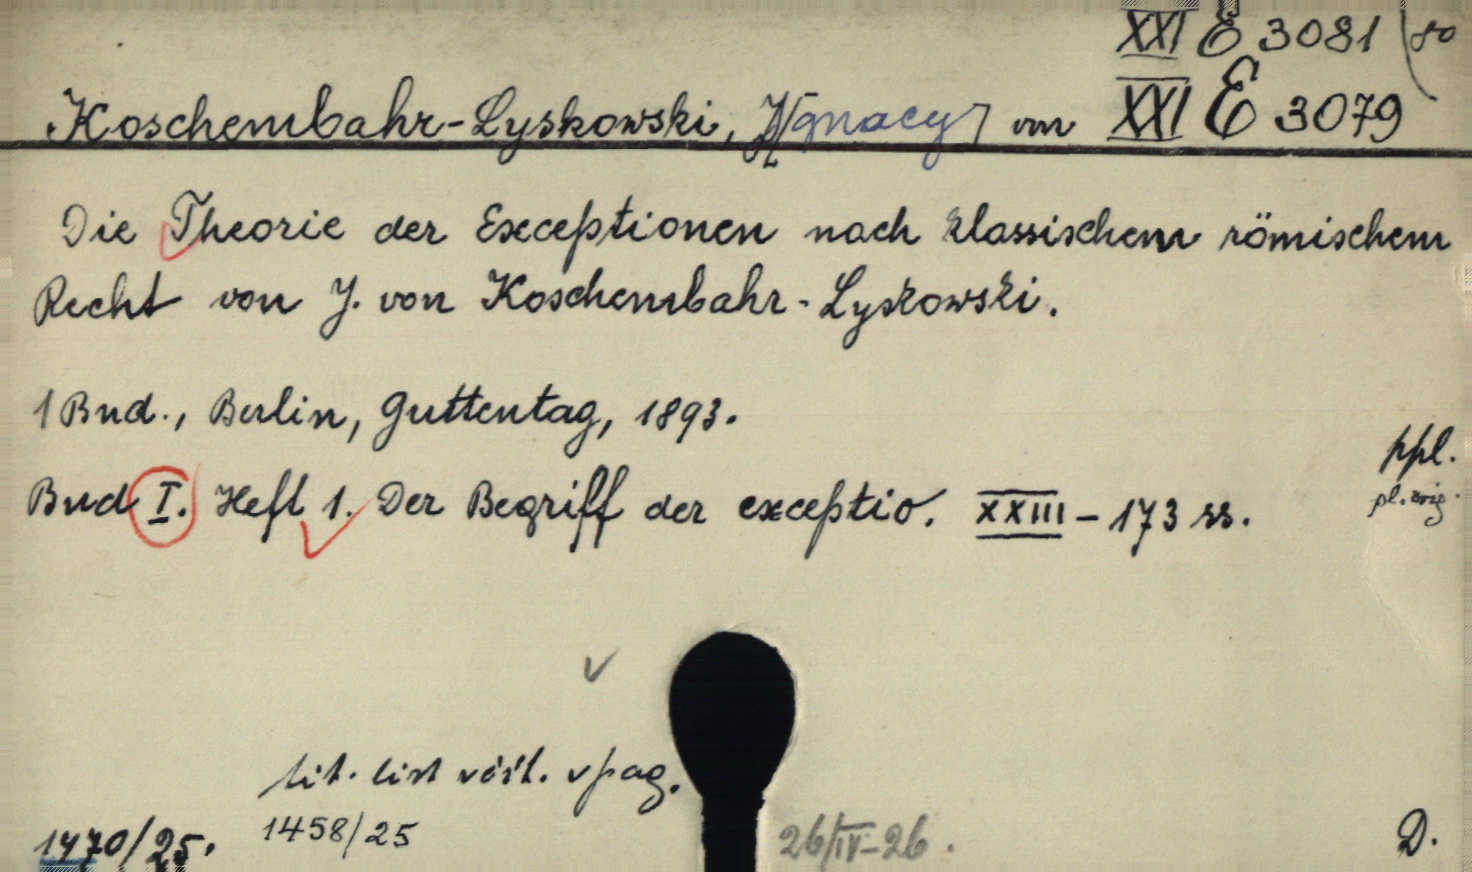 XXI E 3081
Koschembahr-Lyskowski, J[gnacy] von XXI E 3079
Die Theorie der Exceptionen nach klassischem römischem
Recht von J. von Koschembahr-Lyskowski.
1 Bnd., Berlin, Guttentag, 1893.
ppl.
Bnd I. Heft 1. Der Begriff der exceptio. XXIII - 173 ss.
pl. orig.
tit. list
1470/25. 1458/25 26/IV-26. D.